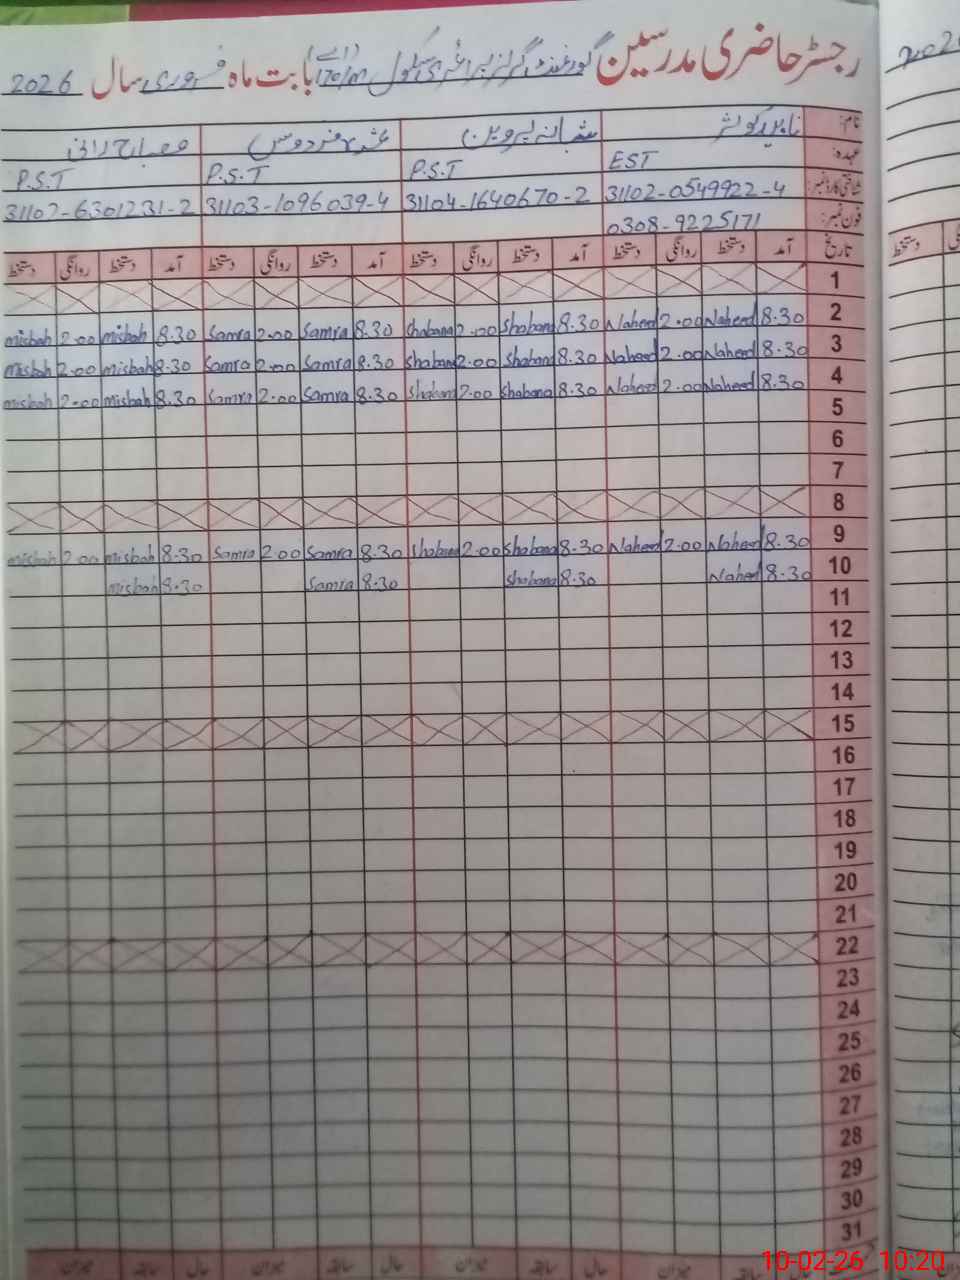 رجسٹر حاضری مدرسین گورنمنٹ گرلز پرائمری سکول 170/m (اے) بابت ماہ فروری سال 2026
نام: ناہید کوثر شبانہ پروین ثمرہ فردوس مصباح رانی
عہدہ: EST P.S.T P.S.T P.S.T
شناختی کارڈ نمبر: 31102-0549922-4 31104-1640670-2 31103-1096039-4 31102-6301231-2
فون نمبر: 0308-9225171
تاریخ آمد دستخط روانگی دستخط آمد دستخط روانگی دستخط آمد دستخط روانگی دستخط آمد دستخط روانگی دستخط
1
2 8.30 Naheed 2.00 Naheed 8.30 Shabana 2.00 Shabana 8.30 Samra 2.00 Samra 8.30 misbah 2.00 misbah
3 8.30 Naheed 2.00 Naheed 8.30 Shabana 2.00 Shabana 8.30 Samra 2.00 Samra 8.30 misbah 2.00 misbah
4 8.30 Naheed 2.00 Naheed 8.30 Shabana 2.00 Shabana 8.30 Samra 2.00 Samra 8.30 misbah 2.00 misbah
5
6
7
8
9 8.30 Naheed 2.00 Naheed 8.30 Shabana 2.00 Shabana 8.30 Samra 2.00 Samra 8.30 misbah 2.00 misbah
10 8.30 Naheed 8.30 Shabana 8.30 Samra 8.30 misbah
11
12
13
14
15
16
17
18
19
20
21
22
23
24
25
26
27
28
29
30
31
میزان سابقہ حال میزان سابقہ حال میزان سابقہ حال
10-02-26 10:20
دستخط